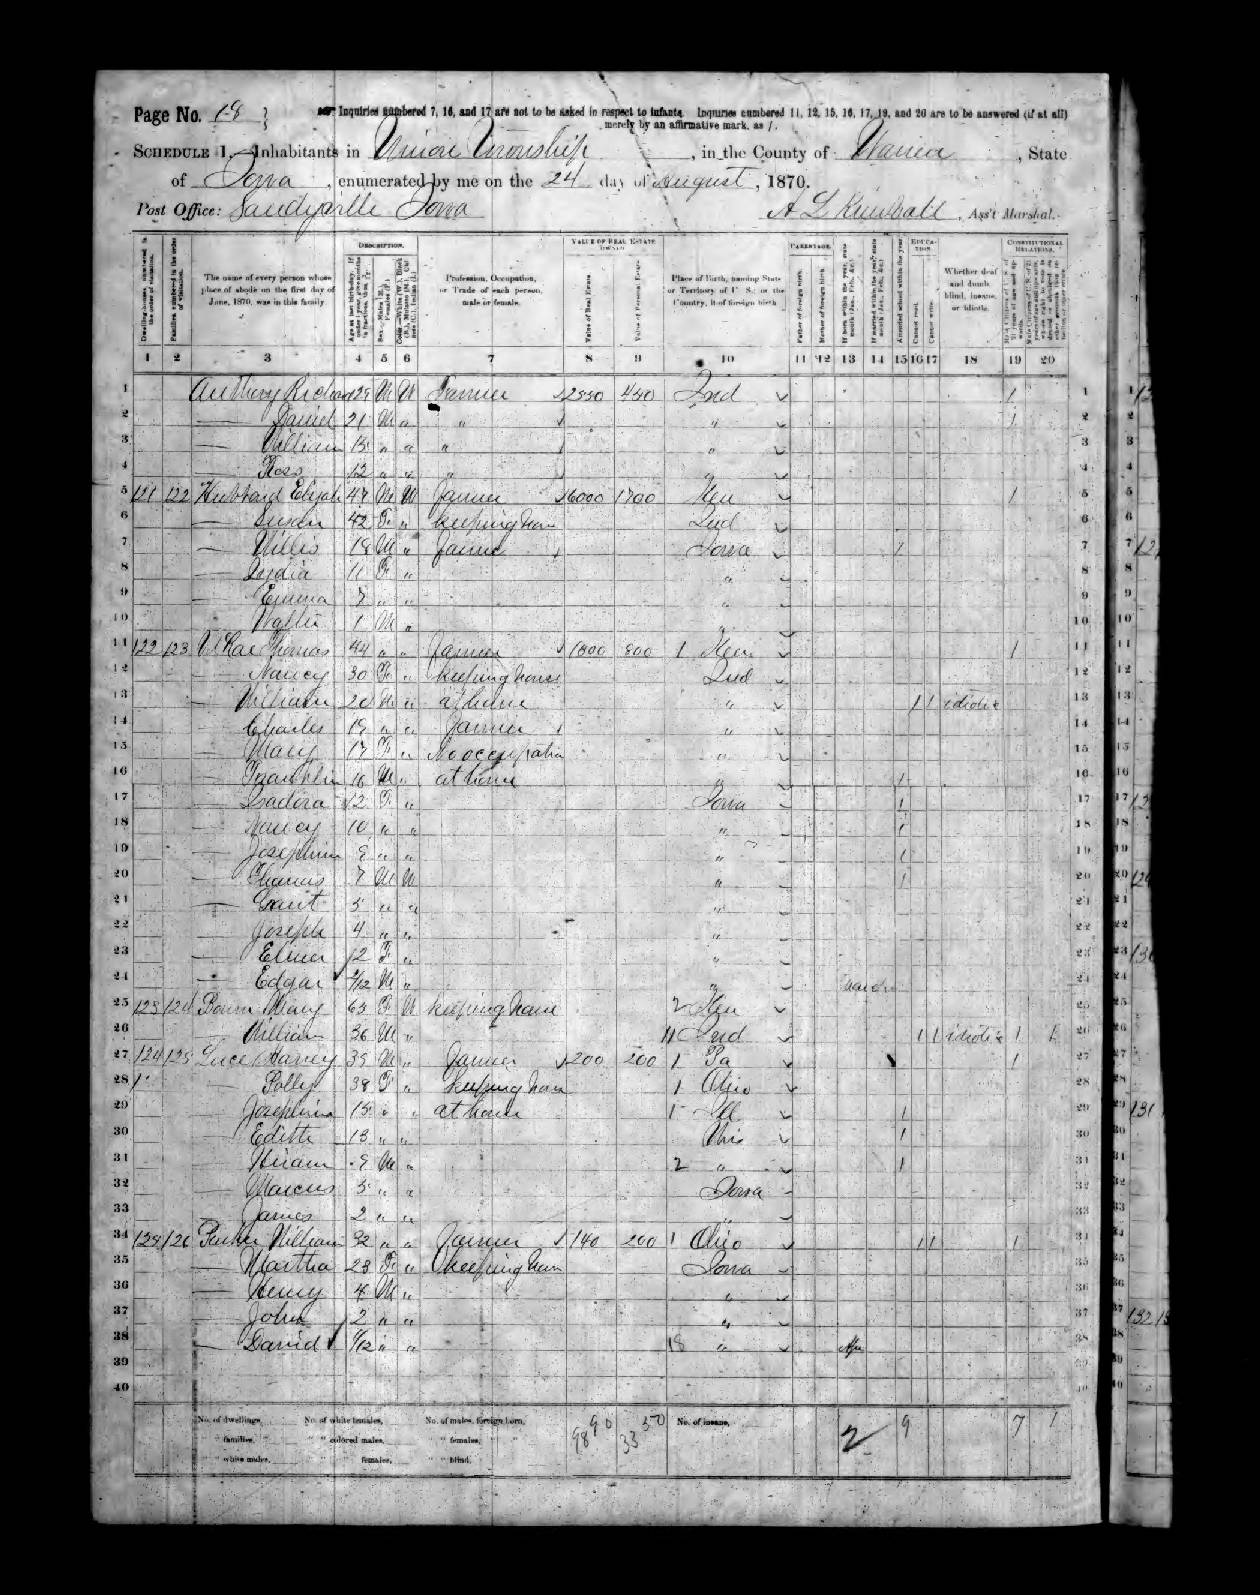 Page No. 18 } Inquiries numbered 7, 16, and 17 are not to be asked in respect to infants. Inquiries numbered 11, 12, 15, 16, 17, 19, and 20 are to be answered (if at all)
merely by an affirmative mark, as /.
SCHEDULE 1.—Inhabitants in Union Township, in the County of Warren, State
of Iowa, enumerated by me on the 24 day of August, 1870.
Post Office: Sandyville Iowa A L Kimball, Ass't Marshal.
DESCRIPTION. VALUE OF REAL ESTATE OWNED PARENTAGE. EDUCATION. CONSTITUTIONAL RELATIONS.
The name of every person whose place of abode on the first day of June, 1870, was in this family.
Profession, Occupation, or Trade of each person, male or female.
Value of Real Estate.
Place of Birth, naming State or Territory of U. S.; or the Country, if of foreign birth
Father of foreign birth. Mother of foreign birth.
Whether deaf and dumb, blind, insane, or idiotic.
1 2 3 4 5 6 7 8 9 10 11 12 13 14 15 16 17 18 19 20
1 Anthony Richard 29 M W Farmer 2550 450 Ind 1 1
2 — Daniel 21 M " " " 1 2
3 — William 15 " " " " 3
4 — Ross 12 " " " " 4
5 121 122 Hubbard Elijah 47 M W Farmer 6000 1700 Ken 1 5
6 — Susan 42 F " Keeping house Ind 6
7 — Willis 18 M " Farmer Iowa 1 7
8 — Lydia 11 F " " 8
9 — Emma 7 " " " 9
10 — Walter 1 M " " 10
11 122 123 Thomas 44 " " Farmer 1800 800 1 Ken 1 11
12 — Nancy 30 F " Keeping house Ind 12
13 — William 20 M " at home " 1 1 idiotic 13
14 — Charles 19 " " Farmer " 14
15 — Mary 17 F " No occupation " 15
16 — Franklin 16 M " at home " 1 16
17 — Isadora 12 F " Iowa 1 17
18 — Nancy 10 " " " 1 18
19 — Josephine 9 " " " 1 19
20 — Thomas 7 M W " 1 20
21 — Grant 5 " " " 21
22 — Joseph 4 " " " 22
23 — Elmer 2 F " " 23
24 — Edgar M " " March 24
25 123 124 Mary 65 F W Keeping house 2 Ken 25
26 William 36 M " Ind 1 1 idiotic 1 1 26
27 124 125 Luce Harvey 39 M " Farmer 200 200 1 Pa 1 27
28 — Polly 38 F " Keeping house 1 Ohio 28
29 — Josephine 15 " " at home 1 Ill 1 29
30 — Edith 13 " " Ohio 1 30
31 — Hiram 9 M " 2 " 1 31
32 — Marcus 5 " " Iowa 32
33 — James 2 " " " 33
34 125 126 William 32 " " Farmer 140 200 1 Ohio 1 1 1 34
35 — Martha 23 F " Keeping house Iowa 35
36 — Henry 4 M " " 36
37 — John 2 " " " 37
38 — David " " 18 " Apr 38
39
40
No. of dwellings, No. of white females, No. of males, foreign born, 9890 3350 No. of insane, 2 9 7 1
" " families, " " colored males, " " females, " "
" " white males, " " females, " " blind,